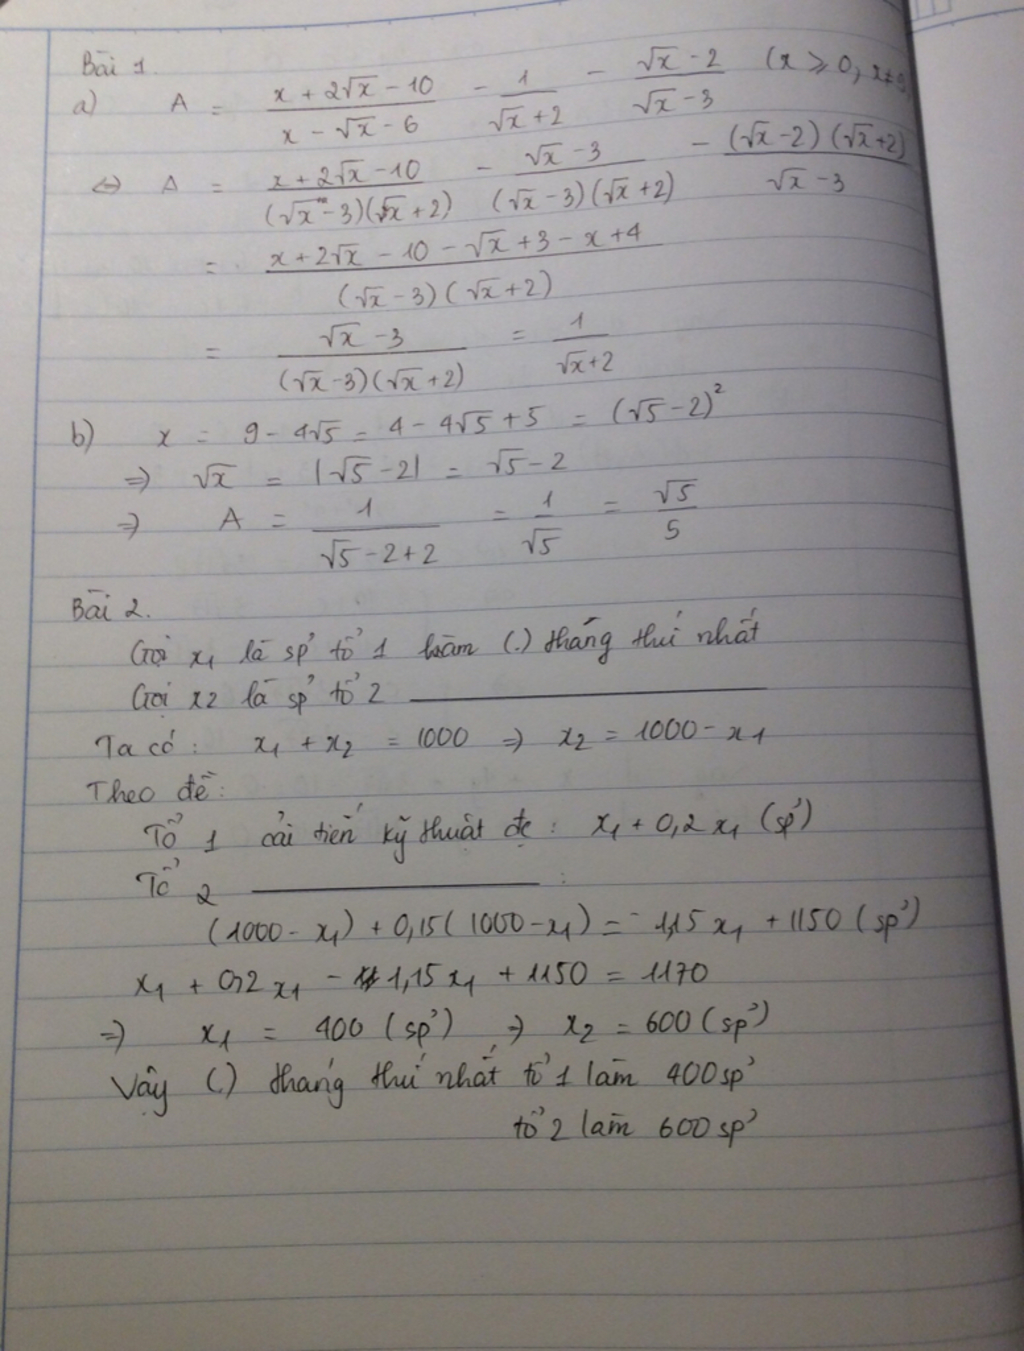 Bài 1.
a) A = (x + 2√x - 10)/(x - √x - 6) - 1/(√x + 2) - (√x - 2)/(√x - 3) (x ⩾ 0, x ≠ 9,
⇔ A = (x + 2√x - 10)/((√x - 3)(√x + 2)) - (√x - 3)/((√x - 3)(√x + 2)) - ((√x - 2)(√x + 2))/(√x - 3)
= (x + 2√x - 10 - √x + 3 - x + 4)/((√x - 3)(√x + 2))
= (√x - 3)/((√x - 3)(√x + 2)) = 1/(√x + 2)
b) x = 9 - 4√5 = 4 - 4√5 + 5 = (√5 - 2)²
⇒ √x = |√5 - 2| = √5 - 2
⇒ A = 1/(√5 - 2 + 2) = 1/√5 = √5/5
Bài 2.
Gọi x₁ là sp' tổ 1 làm (.) tháng thứ nhất
Gọi x2 là sp' tổ 2 ———
Ta có: x₁ + x₂ = 1000 ⇒ x₂ = 1000 - x₁
Theo đề:
Tổ 1 cải tiến kỹ thuật đc: x₁ + 0,2 x₁ (sp')
Tổ 2 ——— :
(1000 - x₁) + 0,15(1000 - x₁) = -1,15 x₁ + 1150 (sp')
x₁ + 0,2 x₁ - 1,15 x₁ + 1150 = 1170
⇒ x₁ = 400 (sp') ⇒ x₂ = 600 (sp')
Vậy (.) tháng thứ nhất tổ 1 làm 400 sp'
tổ 2 làm 600 sp'